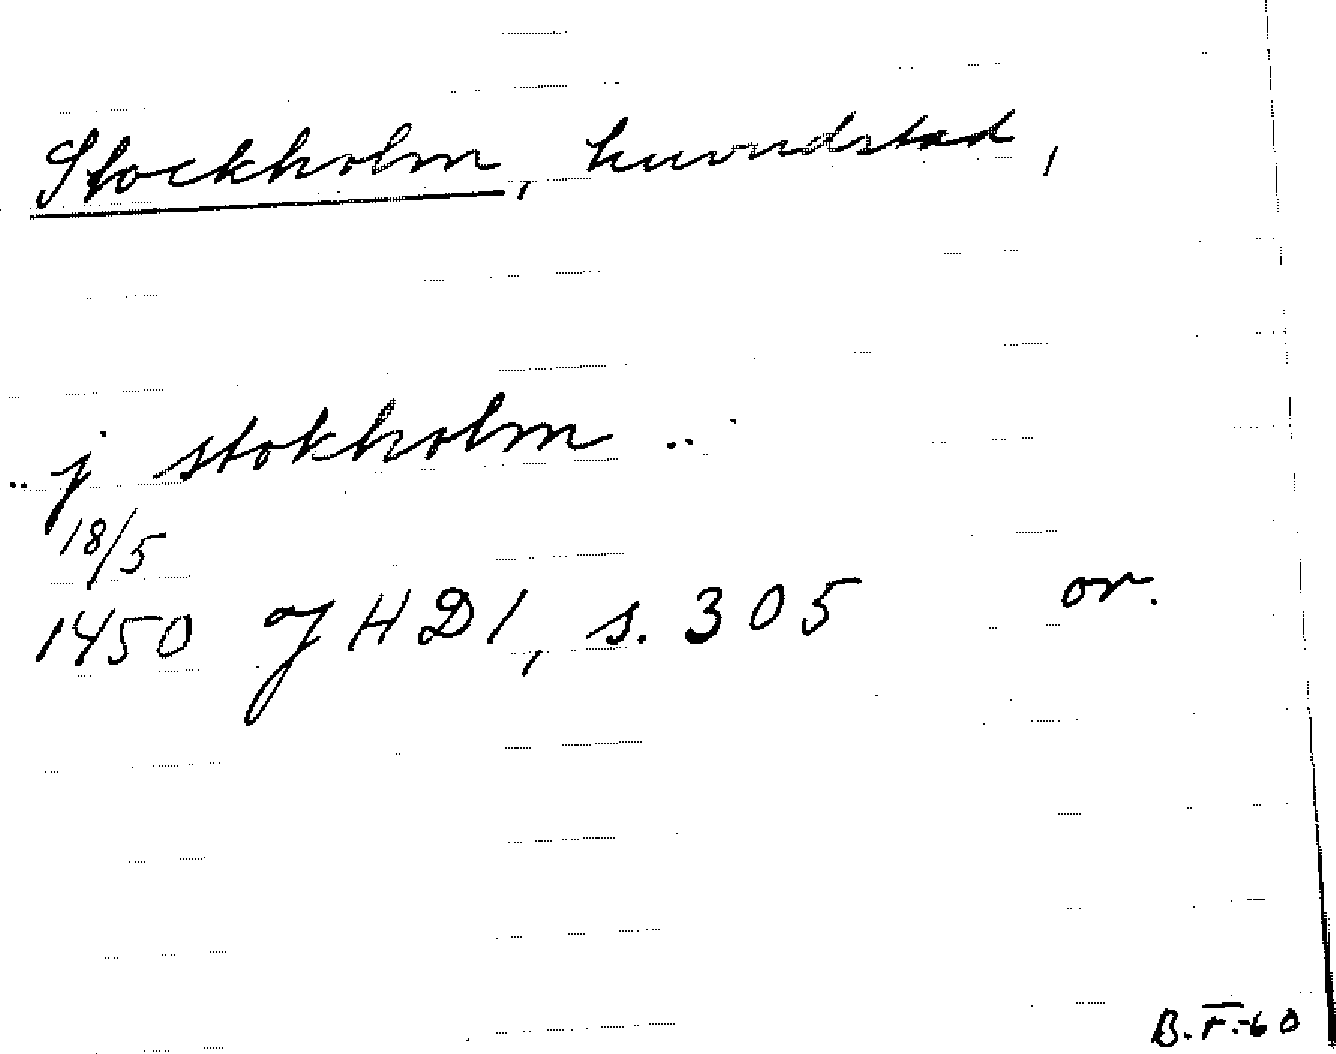 Stockholm, huvudstad,
.. j stokholm ..
18/5
1450 JHD 1, s. 305 or.
B.F.-60